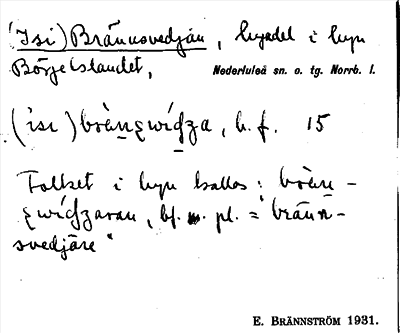 (Isi) Brännsvedjan, byadel i byn
Börjelslandet, Nederluleå sn. o. tg. Norrb. l.
(isi) , b. f. 15
Folket i byn kallas: brän-
, bf. m. pl. = "bränn-
svedjare"
E. BRÄNNSTRÖM 1931.